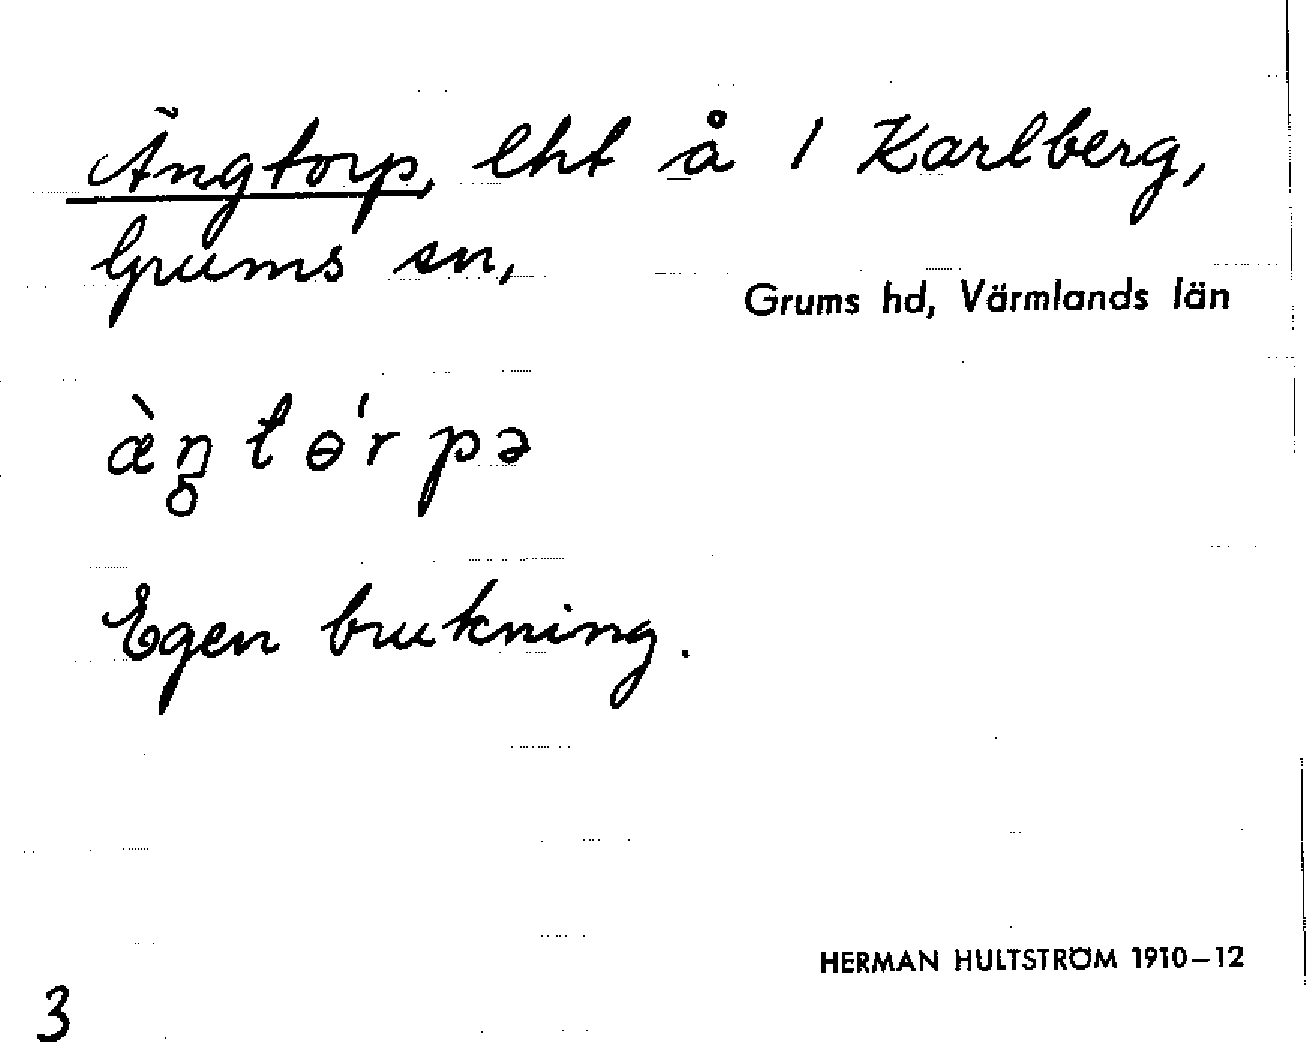 Ängtorp, lht å 1 Karlberg,
Grums sn,
Grums hd, Värmlands län
æ̀ŋtɵ́rpə
Egen brukning.
HERMAN HULTSTRÖM 1910–12
3